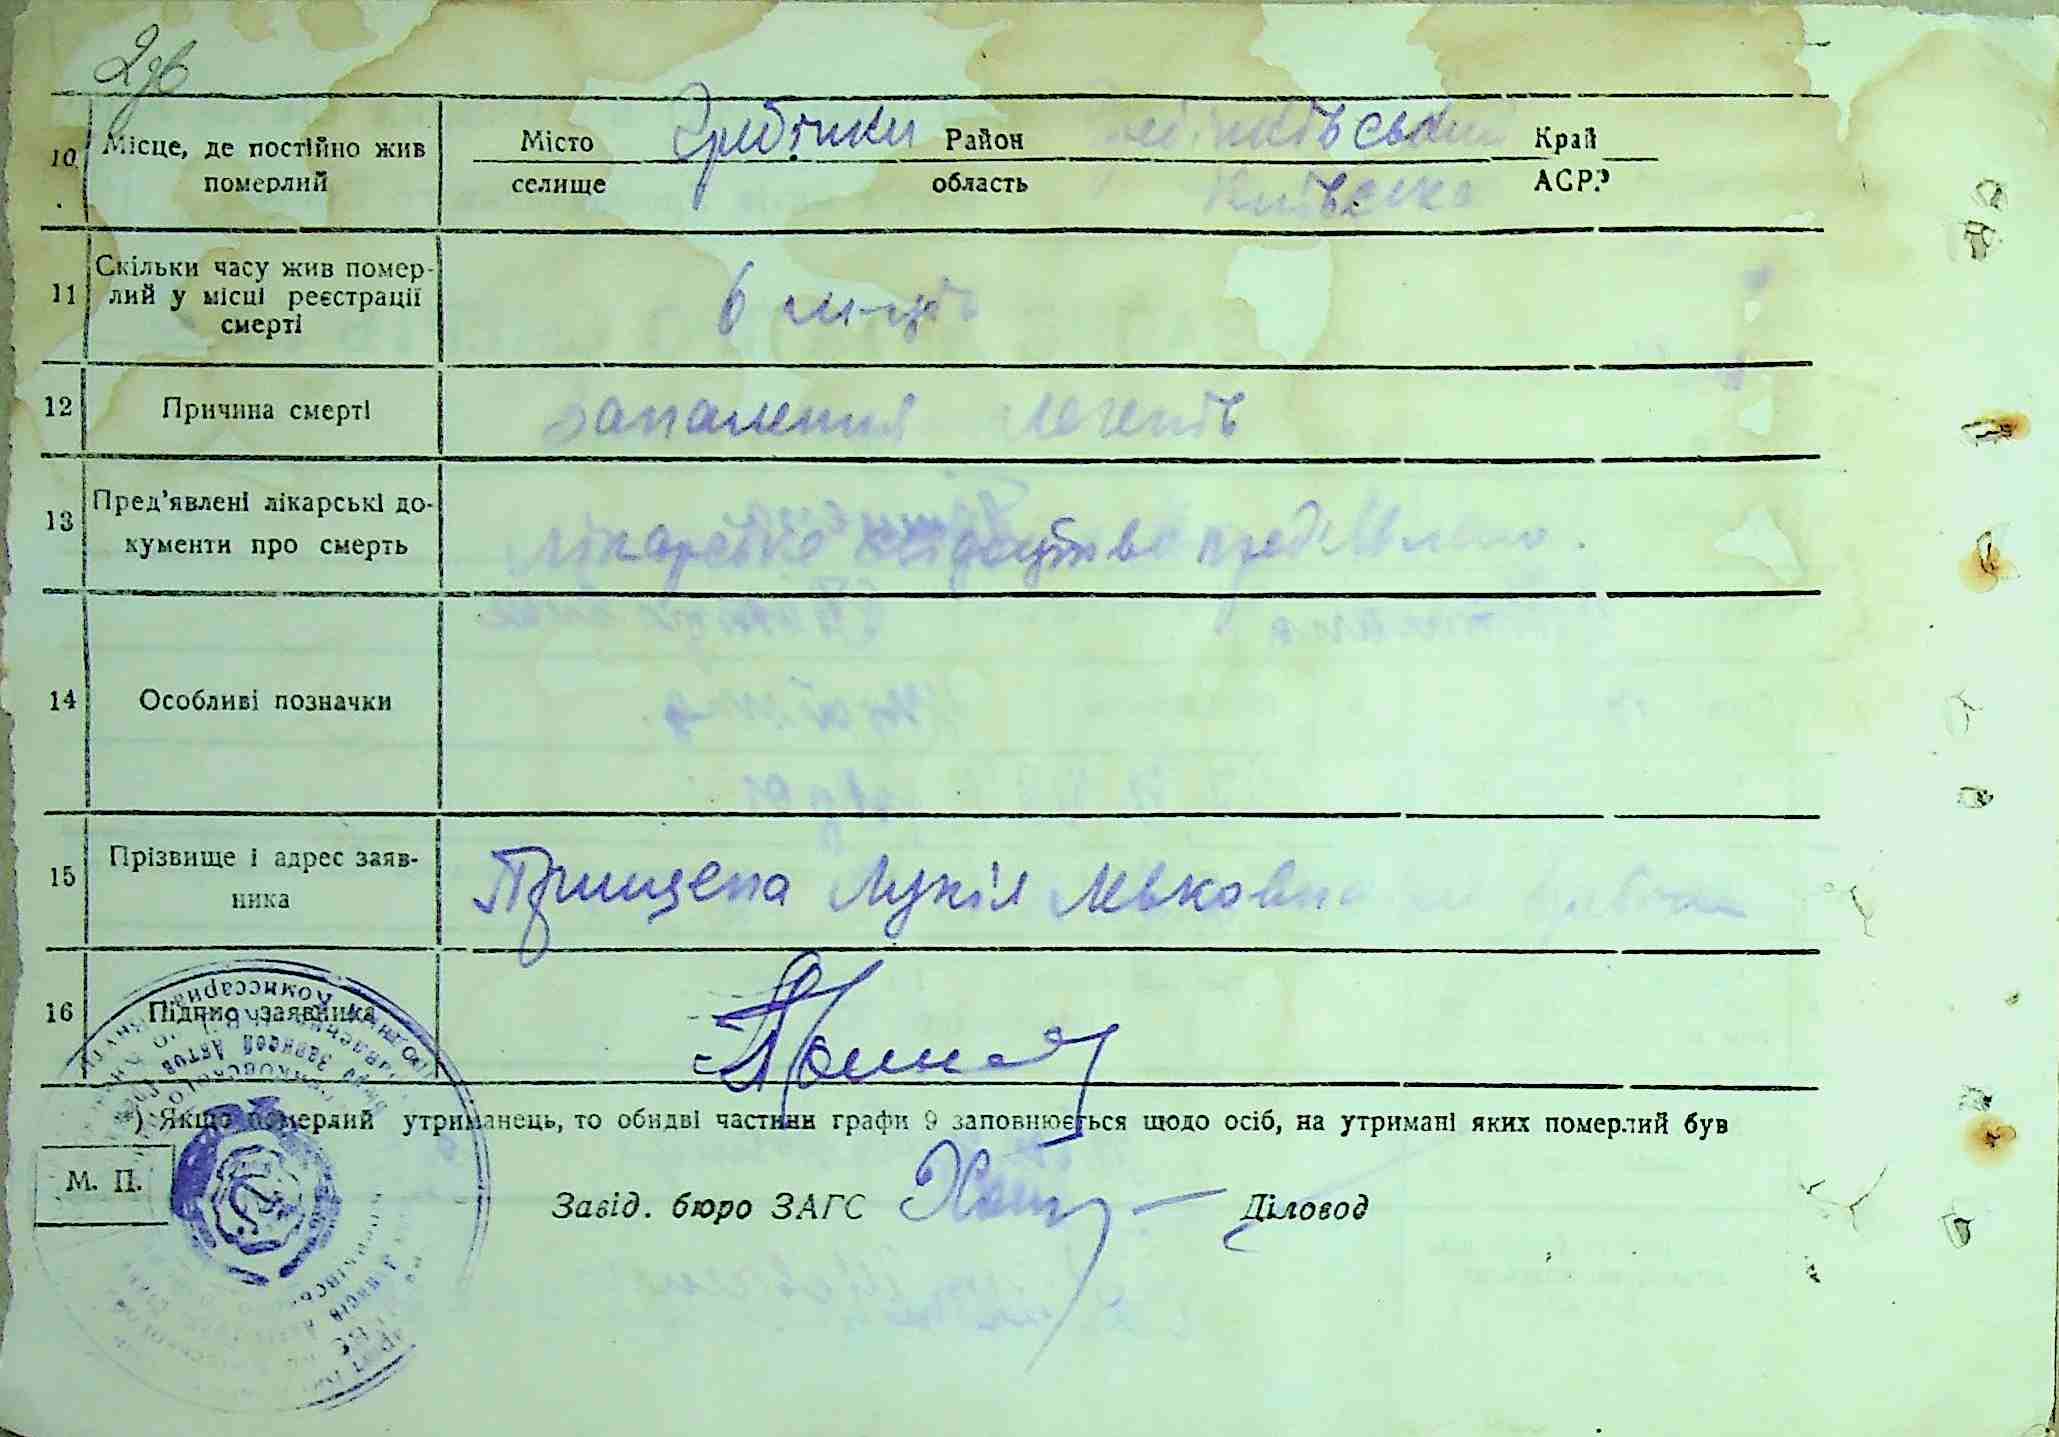 10. Місце, де постійно жив Місто Гребінки Район Гребінківський Край
померлий селище область Київська АСРР
Скільки часу жив помер-
11 лий у місці реєстрації 6 м-ців
смерті
12 Причина смерті запалення легенів
Пред'явлені лікарські до-
13 лікарське свідоцтво пред'явлено.
кументи про смерть
14 Особливі позначки
Прізвище і адрес заяв-
15 Прищепа Лукія Левковна
ника
16 Підпис заявника
*) Якщо померлий утриманець, то обидві частини графи 9 заповнюється щодо осіб, на утримані яких померлий був
М. П.
Завід. бюро ЗАГС Діловод